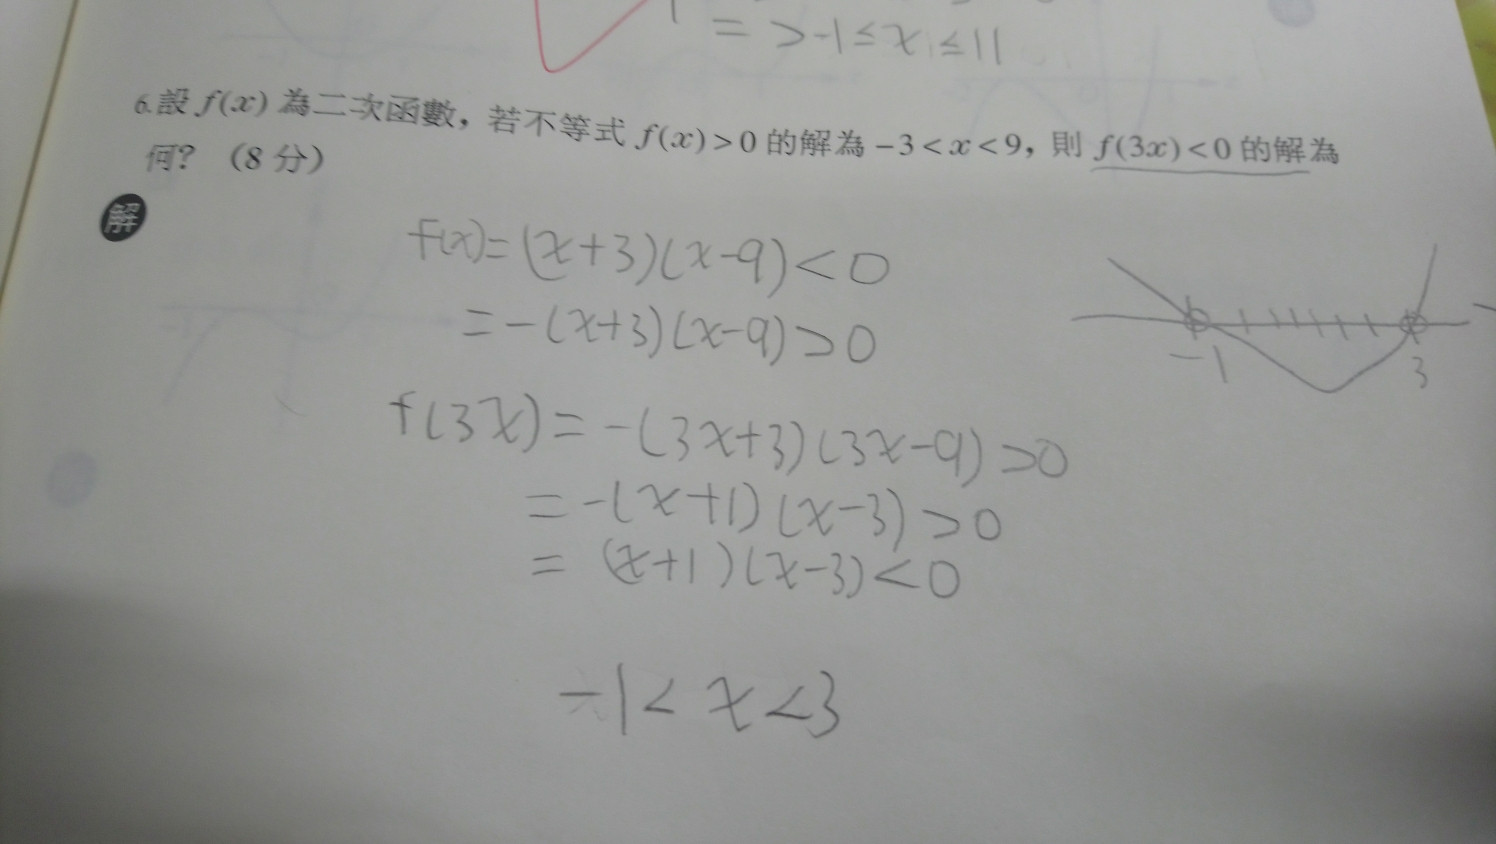 = >-1≤x≤11
6.設 f(x) 為二次函數，若不等式 f(x)>0 的解為 −3<x<9，則 f(3x)<0 的解為
何？（8 分）
解
f(x)=(x+3)(x-9)<0
=-(x+3)(x-9)>0
-1 3
f(3x)=-(3x+3)(3x-9)>0
=-(x+1)(x-3)>0
= (x+1)(x-3)<0
-1<x<3